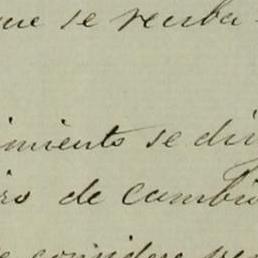 que se reciba
imiento se di
ro de cambio
considere